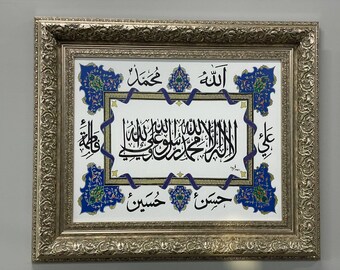 الله محمد
علي
لا اله الا الله محمد رسول الله علي ولي الله
فاطمة
حسن حسين